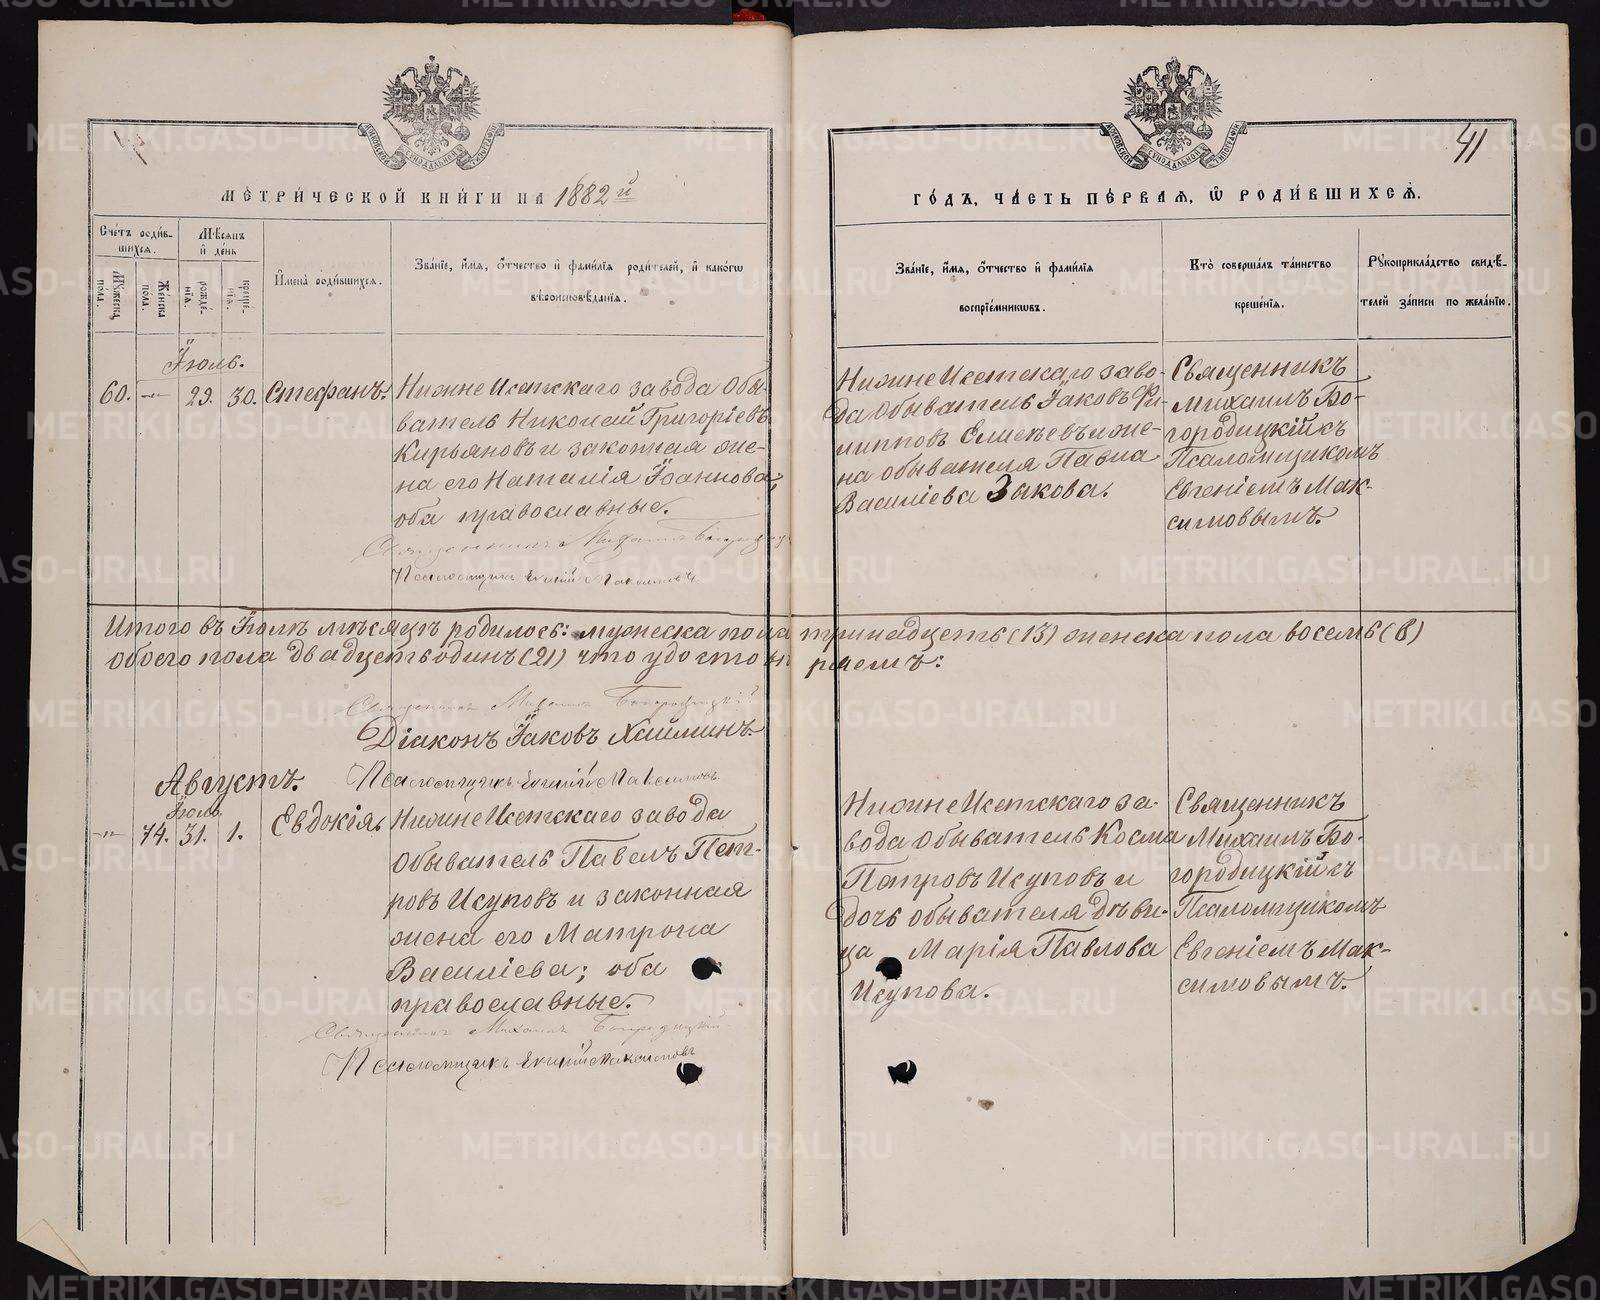 МЕТРИЧЕСКОЙ КНИГИ НА 1882й
ГОДЪ, ЧАСТЬ ПЕРВАЯ, Ѡ РОДИВШИХСЯ.
41
Счетъ родив-
шихся.
Мѣсяцъ
и день
Мужеска
пола.
Женска
пола.
рожде-
нія.
креще-
нія.
Имена родившихся.
Званіе, имя, отчество и фамилія родителей, и какогѡ
вѣроисповѣданія.
Званіе, имя, отчество и фамилія
воспріемникѡвъ.
Кто совершалъ таинство
крещенія.
Рукоприкладство свидѣ-
телей записи по желанію.
Іюль.
60. -"- 29. 30. Стефанъ.
Нижне Исетскаго завода Обы-
ватель Николай Григоріевъ
Кирьяновъ и законная же-
на его Наталія Іоаннова;
оба православные.
Священникъ Михаилъ Богородицкій
Псаломщикъ Евгеній Максимовъ.
Нижне Исетскаго заво-
да Обыватель Іаковъ Фи-
липповъ Елисѣевъ и же-
на обывателя Павла
Василіева Зыкова.
Священникъ
Михаилъ Бо-
городицкій съ
Псаломщикомъ
Евгеніемъ Мак-
симовымъ.
Итого въ Іюлѣ мѣсяцѣ родилось: мужеска пола тринадцать (13) женска пола восемь (8)
Обоего пола двадцать одинъ (21) что удостовѣряемъ:
Священникъ Михаилъ Богородицкій
Діаконъ Іаковъ Хайминъ.
Псаломщикъ Евгеній Максимовъ
Августъ.
Іюль.
-"- 74. 31. 1. Евдокія.
Нижне Исетскаго завода
Обыватель Павелъ Пет-
ровъ Исуповъ и законная
жена его Матрона
Василіева; оба
православные.
Священникъ Михаилъ Богородицкій
Псаломщикъ Евгеній Максимовъ
Нижне Исетскаго за-
вода Обыватель Косма
Петровъ Исуповъ и
дочь обывателя дѣви-
ца Марія Павлова
Исупова.
Священникъ
Михаилъ Бо-
городицкій съ
Псаломщикомъ
Евгеніемъ Мак-
симовымъ.
METRIKI.GASO-URAL.RU